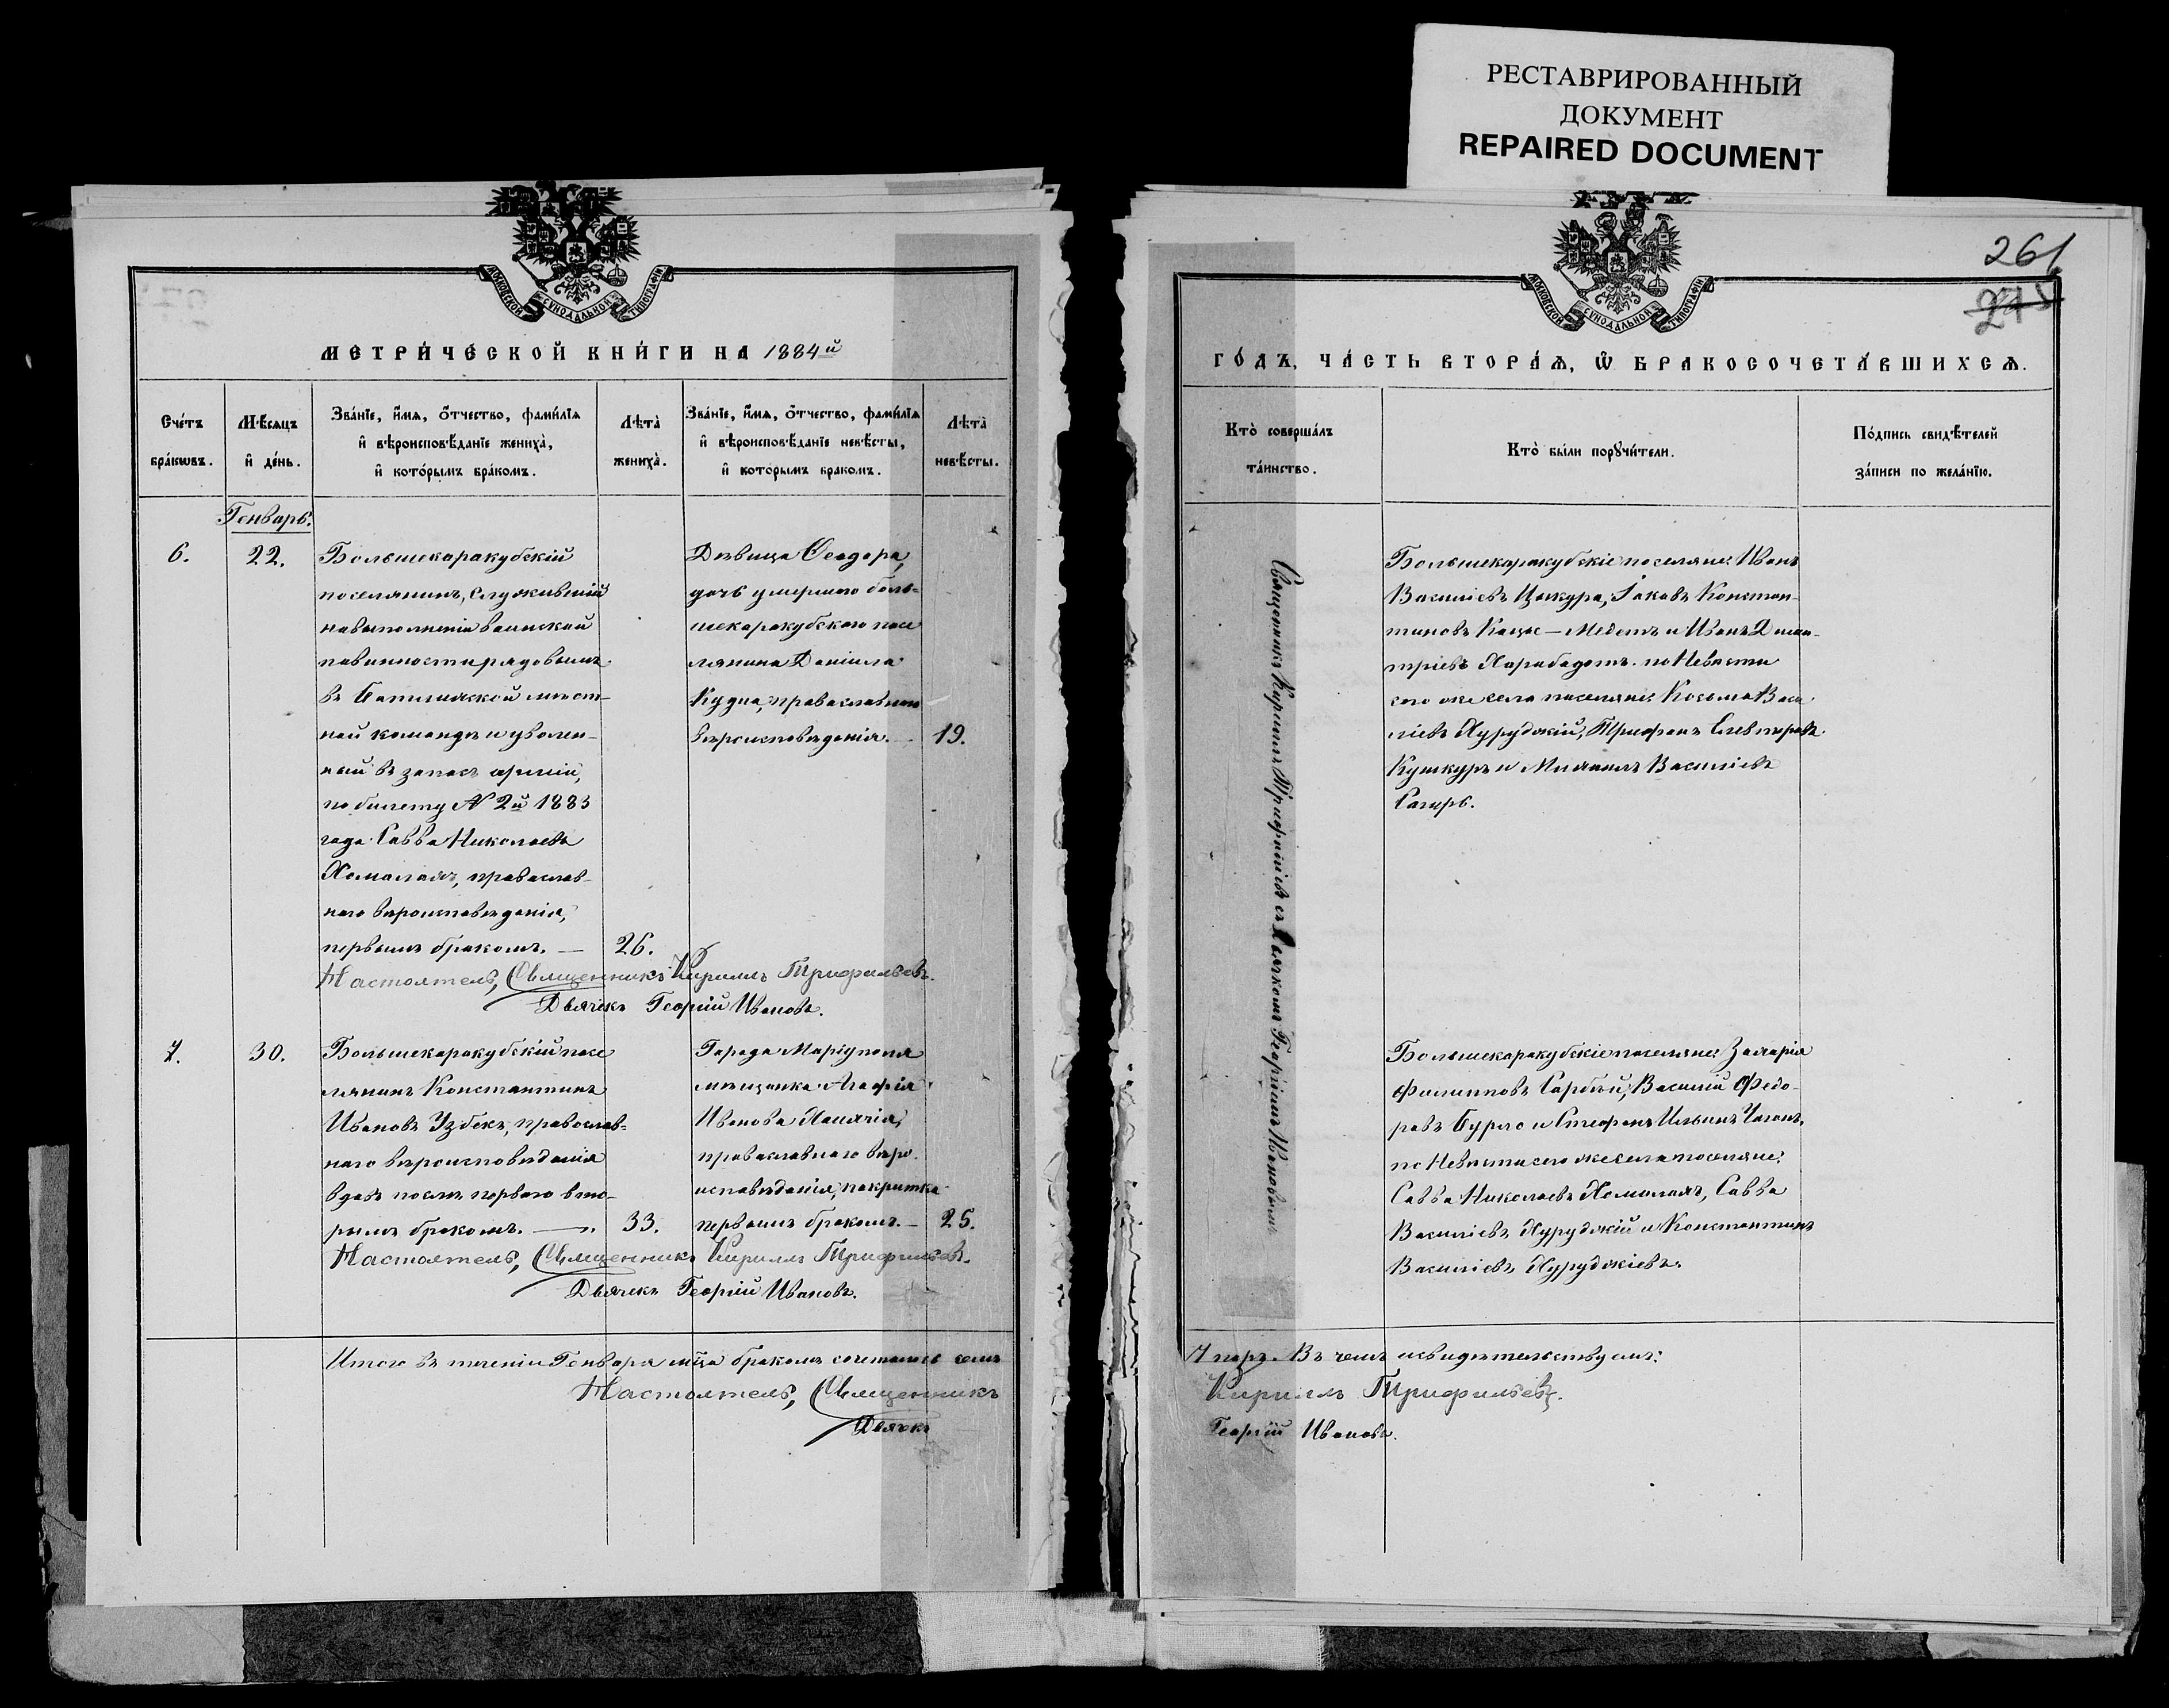 РЕСТАВРИРОВАННЫЙ
ДОКУМЕНТ
REPAIRED DOCUMENT
МОСКОВСКОЙ СѴНОДАЛЬНОЙ ТИПОГРАФІИ
МЕТРИ́ЧЕСКОЙ КНИ́ГИ НА 1884й
Сче́тъ бра́кωвъ.
Мѣ́сяцъ и҆ де́нь.
Зва́нїе, и҆́мѧ, ѻ҆́тчество, фами́лїѧ
и҆ вѣроисповѣ́данїе жениха̀,
и҆ кото́рымъ бра́комъ.
Лѣта̀ жениха̀.
Зва́нїе, и҆́мѧ, ѻ҆́тчество, фами́лїѧ
и҆ вѣроисповѣ́данїе невѣ́сты,
и҆ кото́рымъ бракомъ.
Лѣта̀ невѣ́сты.
Генварь.
6.
22.
Большекаракубскій
поселянинъ, служившій
на выполненіи воинской
повинности рядовымъ
въ мѣст-
ной командѣ и уволен-
ный въ запасъ арміи,
по билету № 2й 1883
года Савва Николаевъ
Хомалахъ, православ-
наго вѣроисповѣданія,
первымъ бракомъ. —
26.
Дѣвица Ѳеодора,
дочь умершаго боль-
шекаракубскаго посе
лянина Даніила
Кудла, православнаго
вѣроисповѣданія. —
19.
Настоятель, Священникъ Кириллъ Трифильевъ.
Дьячекъ Георгій Ивановъ.
7.
30.
Большекаракубскій посе
лянинъ Константинъ
Ивановъ Узбекъ, православ-
наго вѣроисповѣданія
вдовъ послѣ перваго вто-
рымъ бракомъ. —
33.
Города Маріуполя
мѣщанка Агафія
Иванова
православнаго вѣро-
исповѣданія,
первымъ бракомъ. —
25.
Настоятель, Священникъ Кириллъ Трифильевъ.
Дьячекъ Георгій Ивановъ.
Итого въ теченіи Генваря мца бракомъ сочеталось семь
Настоятель, Священникъ
Дьячекъ
261
275
МОСКОВСКОЙ СѴНОДАЛЬНОЙ ТИПОГРАФІИ
ГО́ДЪ, ЧА́СТЬ ВТОРА́Ѧ, Ѽ БРАКОСОЧЕТА́ВШИХСѦ.
Кто̀ соверша́лъ та́инство.
Кто̀ бы́ли порꙋчи́тели.
По́дпись свидѣ́телей за́писи по жела́нїю.
Священникъ Кириллъ Трифильевъ съ Дьячкомъ Георгіемъ Ивановымъ
Большекаракубскіе поселяне: Иванъ
Василіевъ Цыкура, Іаковъ Констан-
тиновъ и Иванъ Дими-
тріевъ Харабадотъ. по Невѣсти
сего же села поселяне: Козьма Васи
ліевъ Хуруджій, Трифонъ Елевтеровъ
Кушкуръ и Михаилъ Василіевъ
Сагиръ.
Большекаракубскіе поселяне: Захарія
Филипповъ Сарбей, Василій Федо-
ровъ Бурло и Стефанъ Ильинъ Чаганъ,
по Невѣсти сего же села поселяне:
Савва Николаевъ Хомалахъ, Савва
Василіевъ Хуруджій и Константинъ
Василіевъ Хуруджіевъ.
7 паръ. Въ чемъ и свидѣтельствуемъ:
Кириллъ Трифильевъ.
Георгій Ивановъ.